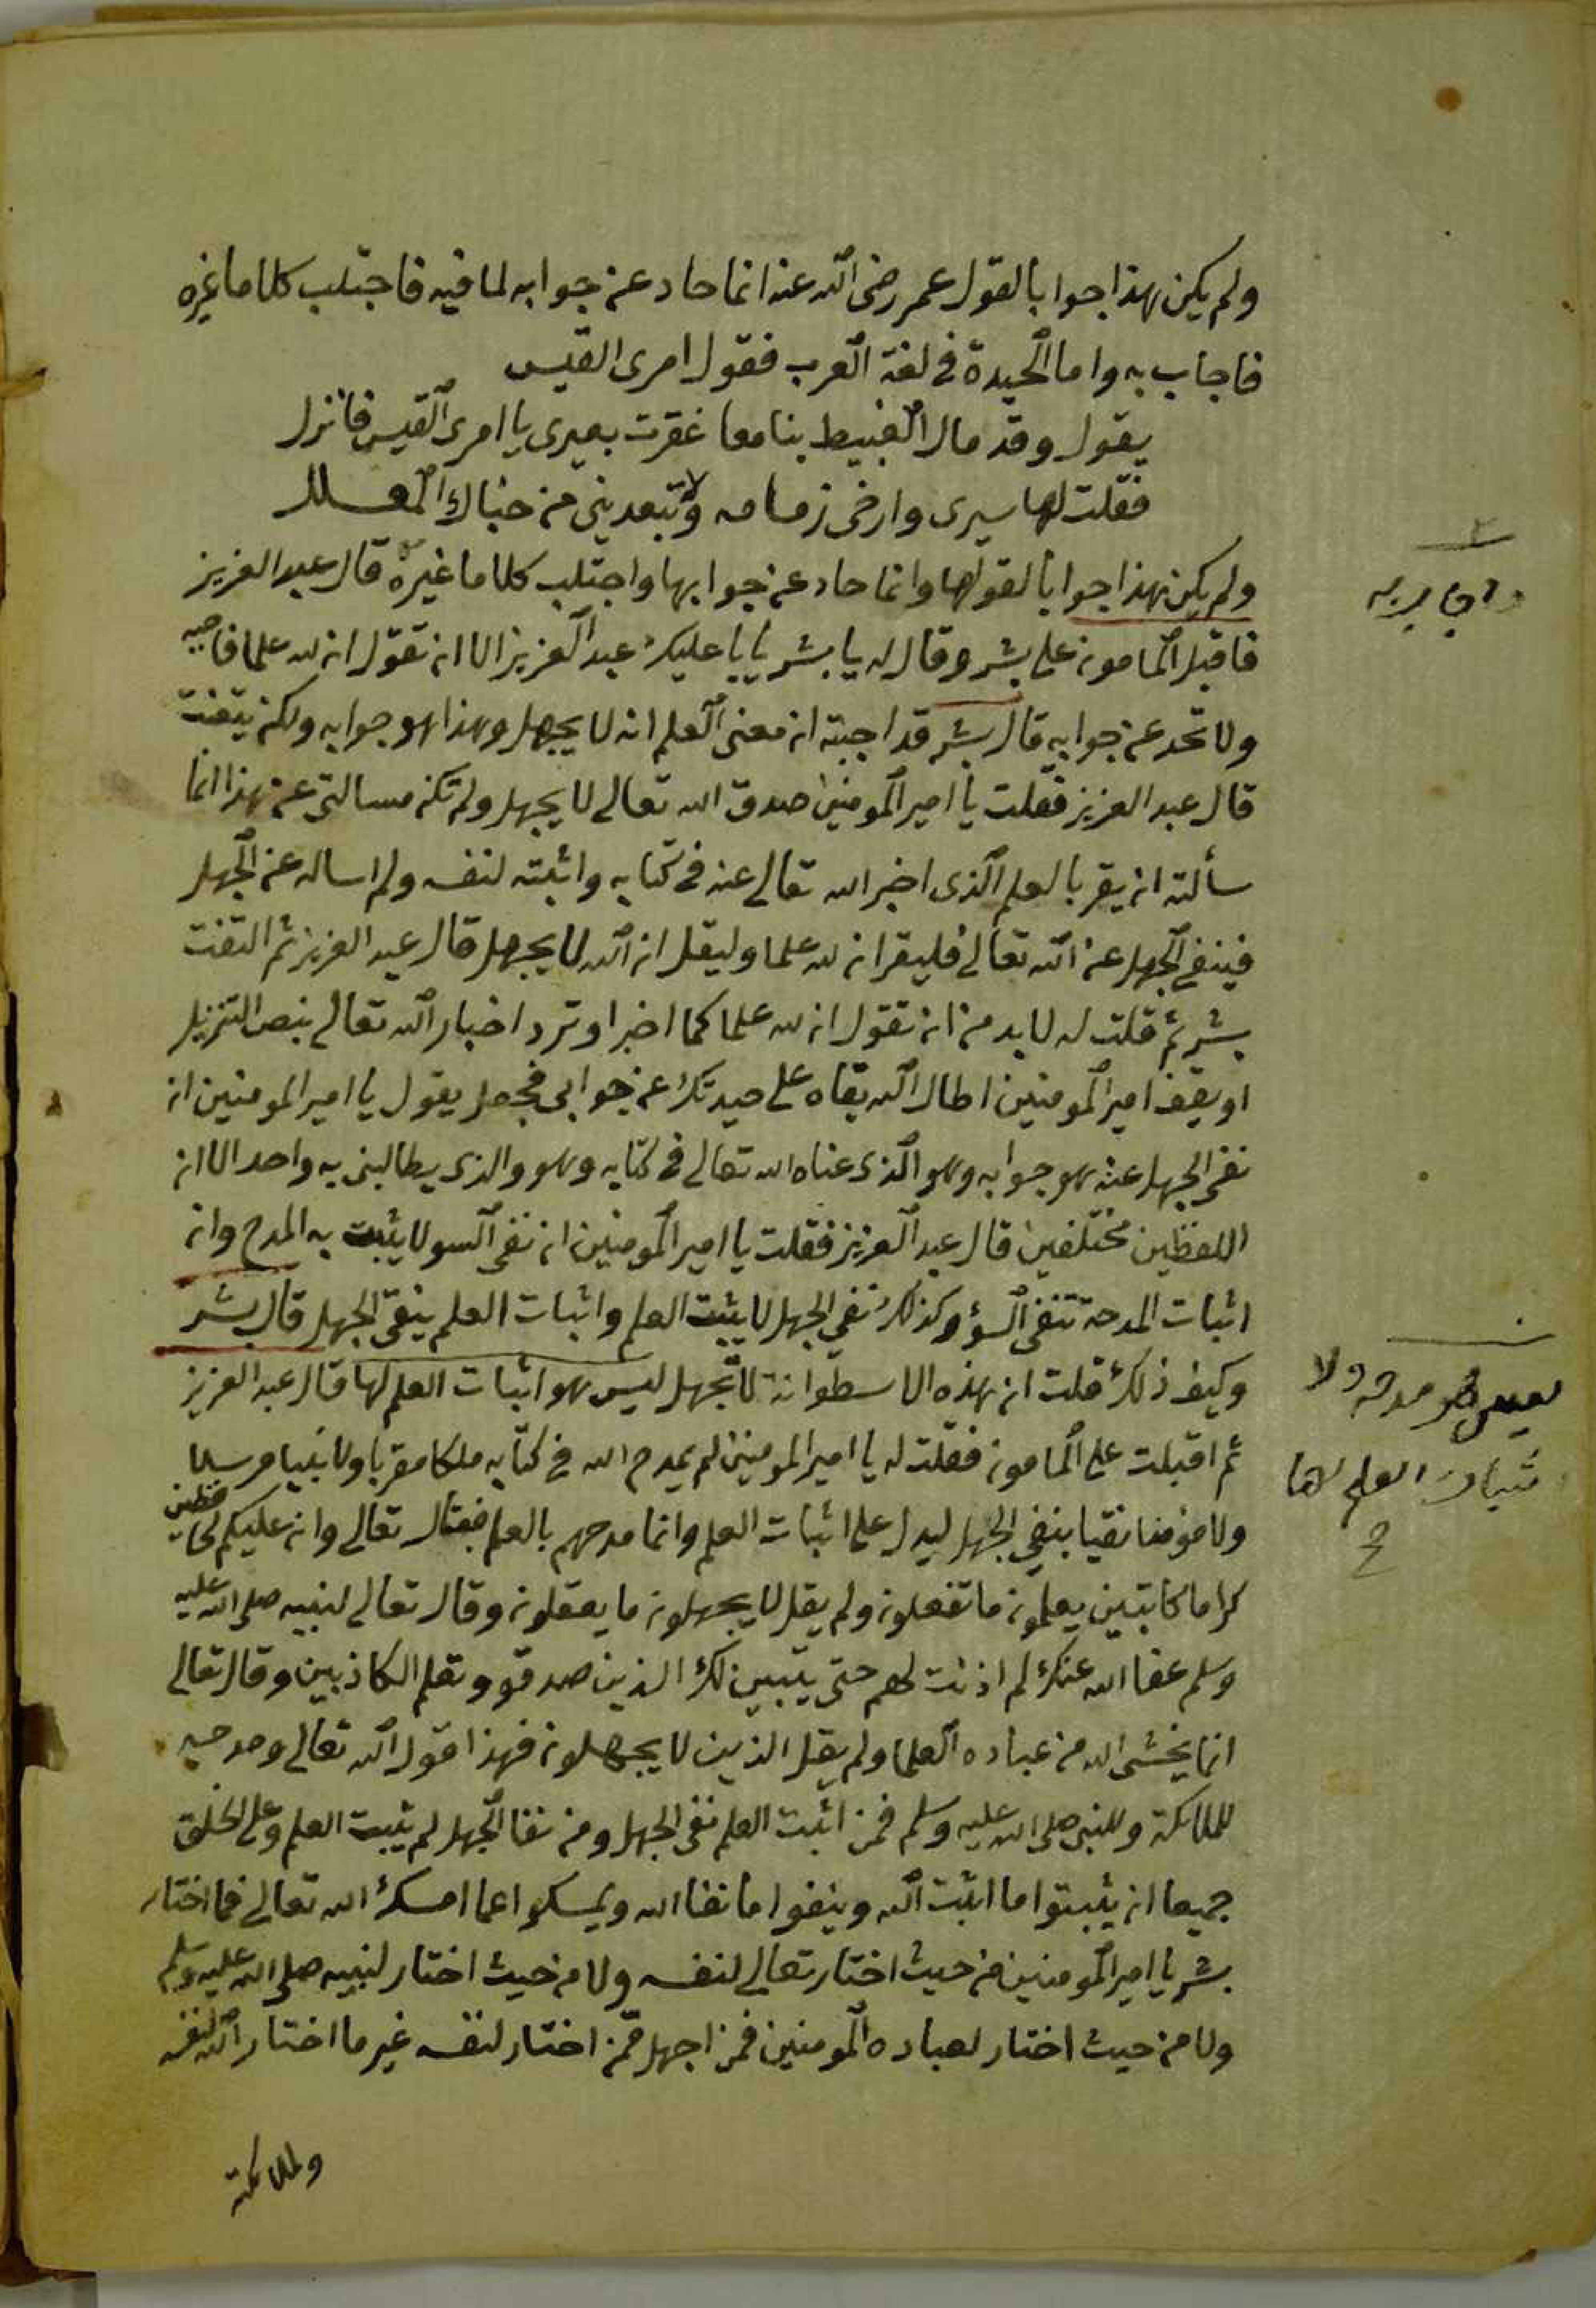 ولم يكن هذا جوابا لقول عمر رضى الله عنه انما حاد عن جوابه لما فيه فاجتلب كلاما غيره
فاجاب به واما الحيدة فى لغة العرب فقول امرى القيس
يقول وقد مال الغبيط بنا معا عقرت بعيرى يا امرى القيس فانزل
فقلت لها سيرى وارخى زمامه ولا تبعدينى من خباك المعلل
ولم يكن هذا جوابا لقولها وانما حاد عن جوابها واجتلب كلاما غيره قال عبد العزيز
فاقبل المامون على بشر وقال له يا بشر يابا عليك عبد العزيز الا ان تقول ان لله علما فاجبه
ولا تحد عن جوابه قال بشر قد اجبته ان معنى العلم انه لا يجهل وهذا هو جوابه ولكن يتعنت
قال عبد العزيز فقلت يا امير المومنين صدق الله تعالى لا يجهل ولم تكن مسالتى عن هذا انما
سألته ان يقر بالعلم الذى اخبر الله تعالى عنه فى كتابه واثبته لنفسه ولم اساله عن الجهل
فينفى الجهل عن الله تعالى فليقر ان لله علما وليقل ان الله لا يجهل قال عبد العزيز ثم التفت
بشر ثم قلت له لا بد من ان تقول ان لله علما كما اخبر او ترد اخبار الله تعالى بنص التنزيل
او يقف امير المومنين اطال الله بقاه على حيدتك عن جوابى فجعل يقول يا امير المومنين ان
نفى الجهل عنه هو جوابه وهو الذى عناه الله تعالى فى كتابه وهو والذى يطالبنى به واحد الا ان
اللفظين مختلفين قال عبد العزيز فقلت يا امير المومنين ان نفى السو لا يثبت به المدح وان
اثبات المدحة تنفى السؤ وكذلك نفى الجهل لا يثبت العلم واثبات العلم ينفى الجهل قال بشر
وكيف ذلك قلت ان هذه الاسطوانة لا تجهل ليس هو اثبات العلم لها قال عبد العزيز
ثم اقبلت على المامون فقلت له يا امير المومنين لم يمدح الله فى كتابه ملكا مقربا ولا نبيا مرسلا
ولا مؤمنا تقيا بنفى الجهل ليدل على اثبات العلم وانما مدحهم بالعلم فقال تعالى وان عليكم لحافظين
كراما كاتبين يعلمون ما تفعلون ولم يقل لا يجهلون ما يعقلون وقال تعالى لنبيه صلى الله عليه
وسلم عفا الله عنك لم اذنت لهم حتى يتبين لك الذين صدقو وتعلم الكاذبين وقال تعالى
انما يخشى الله من عباده العلما ولم يقل الذين لا يجهلون فهذا قول الله تعالى ومدحه
للملائكة وللنبى صلى الله عليه وسلم فمن اثبت العلم نفى الجهل ومن نفا الجهل لم يثبت العلم وعلى الخلق
جميعا ان يثبتوا ما اثبت الله وينفوا ما نفا الله ويمسكوا عما امسك الله تعالى فما اختار
بشر يا امير المومنين من حيث اختار تعالى لنفسه ولا من حيث اختار لنبيه صلى الله عليه وسلم
ولا من حيث اختار لعباده المومنين فمن اجهل ممن اختار لنفسه غير ما اختار الله لنفسه
ولملائكته
ليس هو مدحه ولا
العلم لها